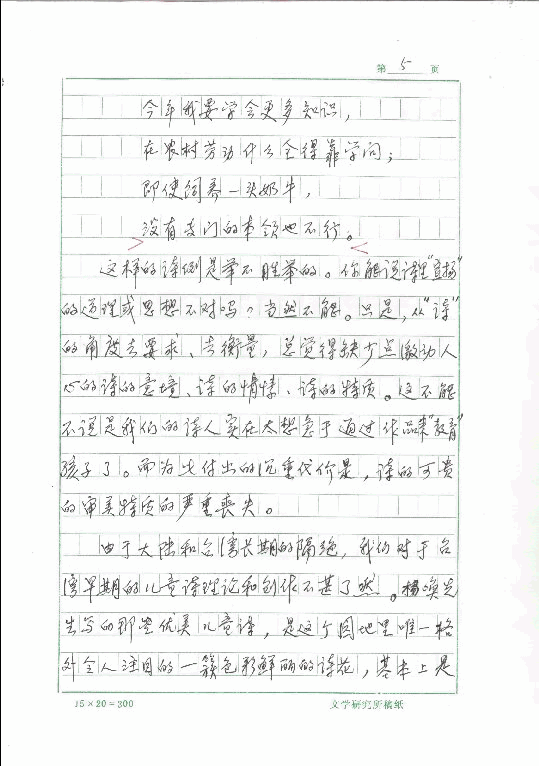 第 5 页
今年我要学会更多知识，
在农村劳动什么全得靠学问；
即使饲养一头奶牛，
没有专门的本领也不行。
这样的诗例是举不胜举的。你能说诗里“宣扬”
的道理或思想不对吗？当然不能。只是，从“诗”
的角度去要求、去衡量，总觉得缺少点激动人
心的诗的意境、诗的情愫、诗的特质。这不能
不说是我们的诗人实在太想急于通过作品来“教育”
孩子了。而为此付出的沉重代价是，诗的可贵
的审美特质的严重丧失。
由于大陆和台湾长期的隔绝，我们对于台
湾早期的儿童诗理论和创作不甚了然。杨唤先
生写的那些优美儿童诗，是这个园地里唯一格
外令人注目的一簇色彩鲜丽的诗花，基本上是
15×20=300
文学研究所稿纸